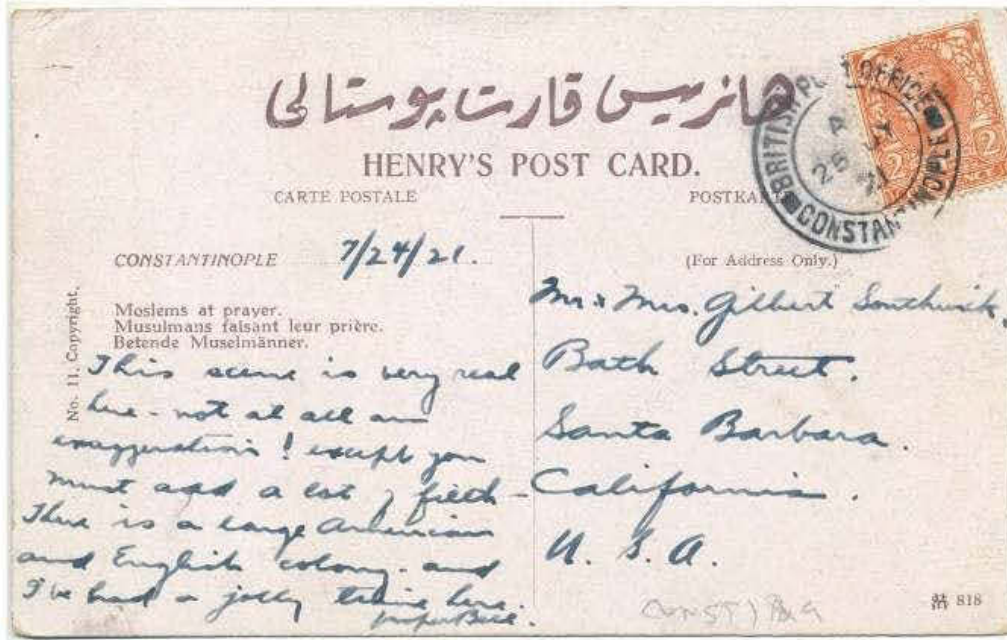 هانریس قارت پوستالی
HENRY'S POST CARD.
CARTE POSTALE
POSTKARTE
BRITISH POST OFFICE CONSTANTINOPLE
CONSTANTINOPLE 7/24/21.
(For Address Only.)
No. 11. Copyright.
Moslems at prayer.
Musulmans faisant leur prière.
Betende Muselmänner.
This scene is very real
here - not at all an
exaggeration! except you
must add a lot of filth -
There is a large American
and English colony. and
I've had a jolly time here.
Mr & Mrs. Gilbert Southwick.
Bath Street.
Santa Barbara.
California.
U. S. A.
818